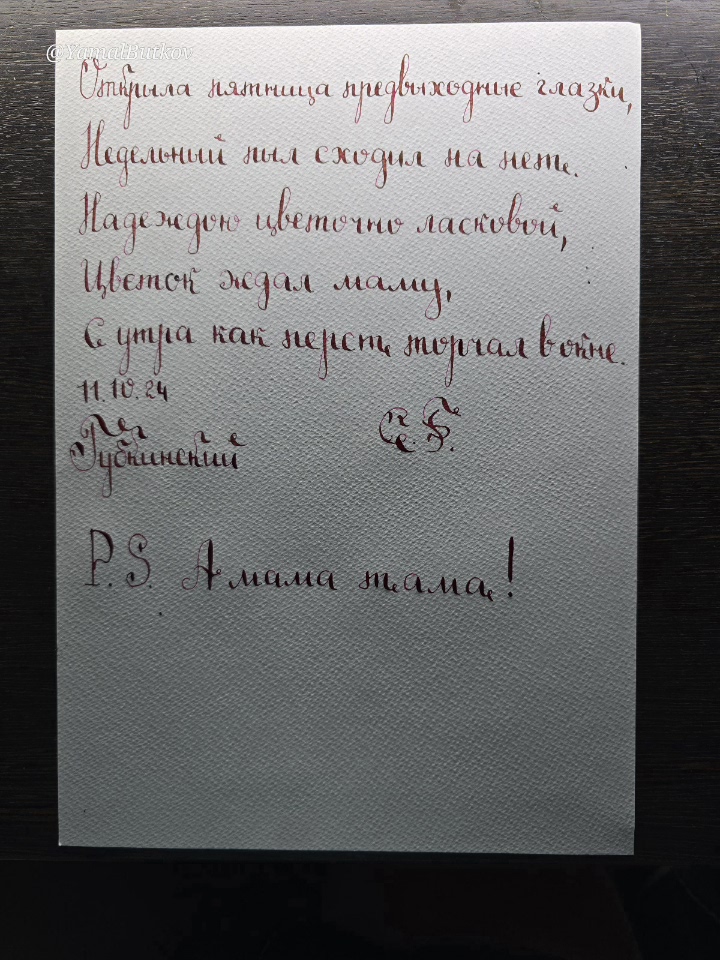 @YamalButkov
Открыла пятница предвыходные глазки,
Недельный пыл сходил на нет.
Надеждою цветочно ласковой,
Цветок ждал маму,
С утра как перст торчал в окне.
11.10.24
Губкинский
С. Б.
P.S. А мама тама!